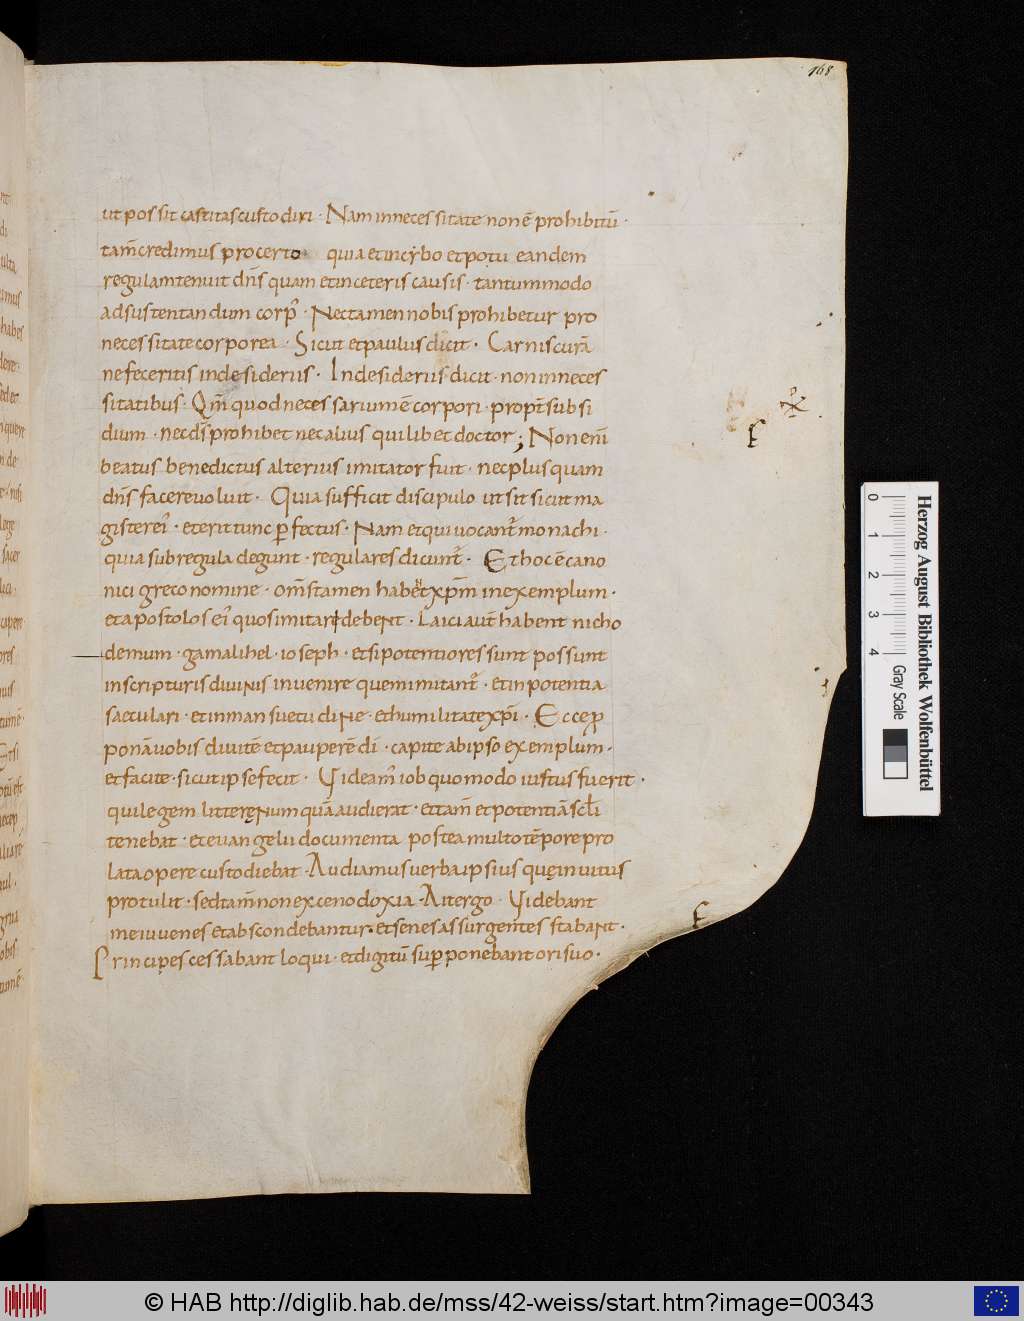 168
ut possit castitas custodiri · Nam in necessitate non ē prohibitū ·
tam̄ credimus procerto quia et in cybo et potu eandem
regulam tenuit dn̄s quam et in ceteris causis · tantummodo
ad sustentandum corp̄ · Nec tamen nobis prohibetur pro
necessitate corporea · Sicut et paulus dicit · Carnis curā
ne feceritis in desideriis · In desideriis dicit · non in neces
sitatibus · Qm̄ quod necessarium ē corpori · propt̄ subsi
dium · nec ds̄ prohibet nec alius quilibet doctor ; Non eni̅
beatus benedictus alterius imitator fuit · nec plus quam
dn̄s facere voluit · Quia sufficit discipulo ut sit sicut ma
gister ei᾽ · et erit tunc ꝑfectus · Nam et qui vocant᾽ monachi ·
quia sub regula degunt · regulares dicunt᾽ · Et hoc ē cano
nici greco nomine · om̄s tamen habent xp̄m in exemplum ·
et apostolos ei᾽ quos imitari debent · Laici aut̄ habent nicho
demum · gamalihel · ioseph · et si potentiores sunt possunt
in scripturis divinis invenire quem imitant᾽ · et in potentia
saeculari · et in mansuetudine · et humilitate xp̄i · Ecce ꝓ
ponā vobis divitē et pauperē di · capite ab ipso exemplum ·
et facite · sicut ipse fecit · Videam᾽ iob quomodo iustus fuerit ·
qui legem litterę Num quā audierat · et tam̄ et potentiā scl̄i
tenebat · et evangelii documenta postea multo tēpore pro
lata opere custodiebat · Audiamus verba ipsius quę invitus
protulit · sed tam̄ non ex cenodoxia · Ait ergo · Videbant
me iuvenes et abscondebantur · et senes assurgentes stabant ·
Principes cessabant loqui · et digitū suꝑponebant ori suo ·
Herzog August Bibliothek Wolfenbüttel
0 1 2 3 4
Gray Scale
© HAB http://diglib.hab.de/mss/42-weiss/start.htm?image=00343